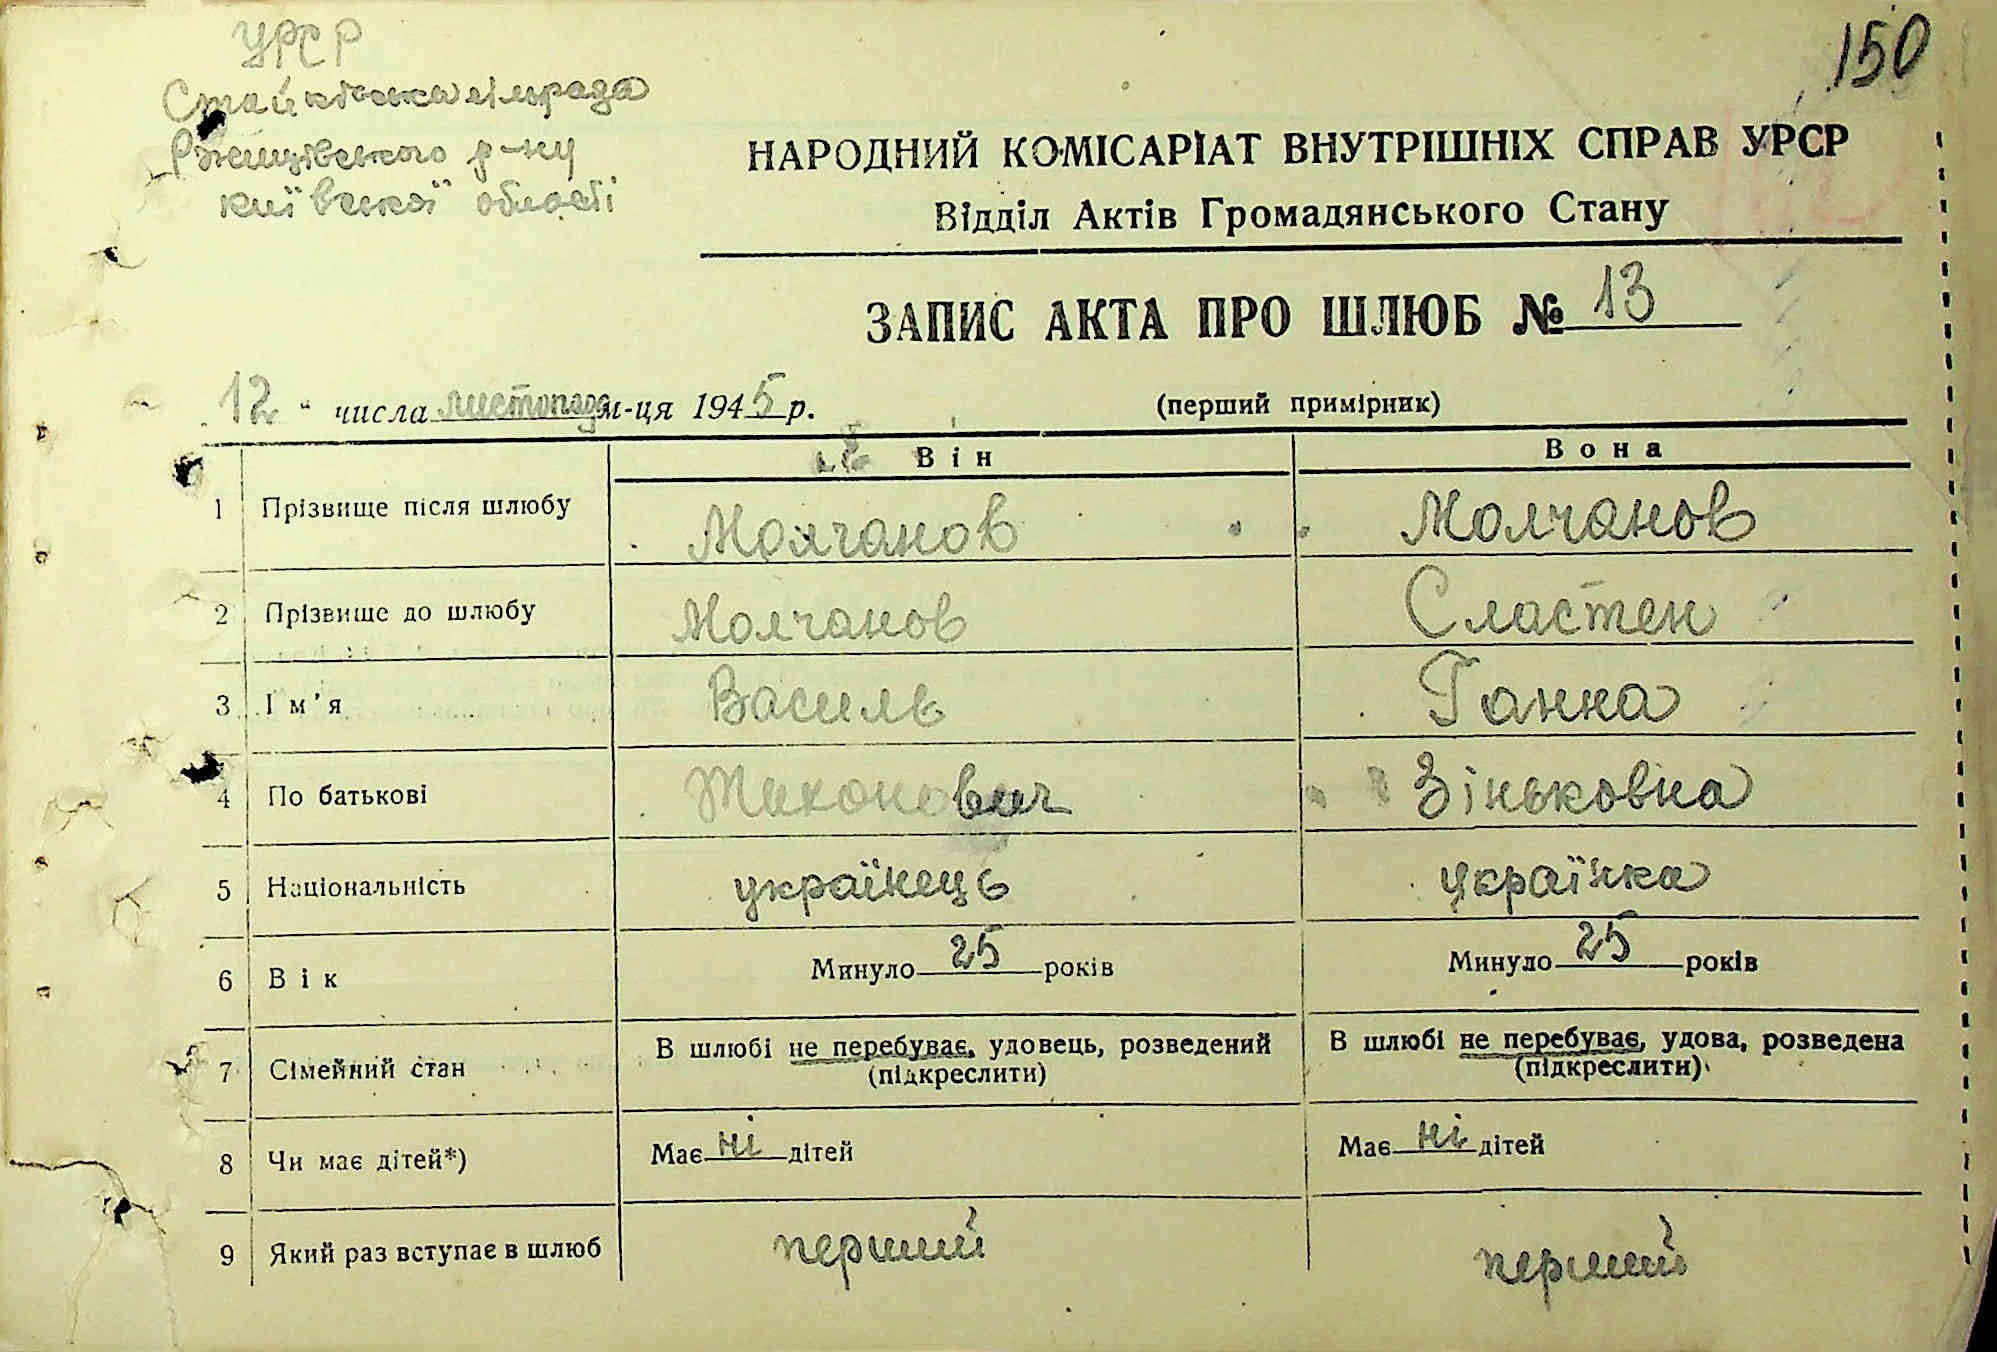 150
УРСР
Стайківська сільрада
Ржищівського р-ну
київської області
НАРОДНИЙ КОМІСАРІАТ ВНУТРІШНІХ СПРАВ УРСР
Відділ Актів Громадянського Стану
ЗАПИС АКТА ПРО ШЛЮБ № 13
12 " числа листопада м-ця 1945 р. (перший примірник)
Він Вона
1 Прізвище після шлюбу Молчанов Молчанов
2 Прізвище до шлюбу Молчанов Сластен
3 Ім'я Василь Ганна
4 По батькові Тихонович Зіньковна
5 Національність українець українка
6 Вік Минуло 25 років Минуло 25 років
7 Сімейний стан В шлюбі не перебуває, удовець, розведений (підкреслити) В шлюбі не перебуває, удова, розведена (підкреслити)
8 Чи має дітей*) Має ні дітей Має ні дітей
9 Який раз вступає в шлюб перший перший